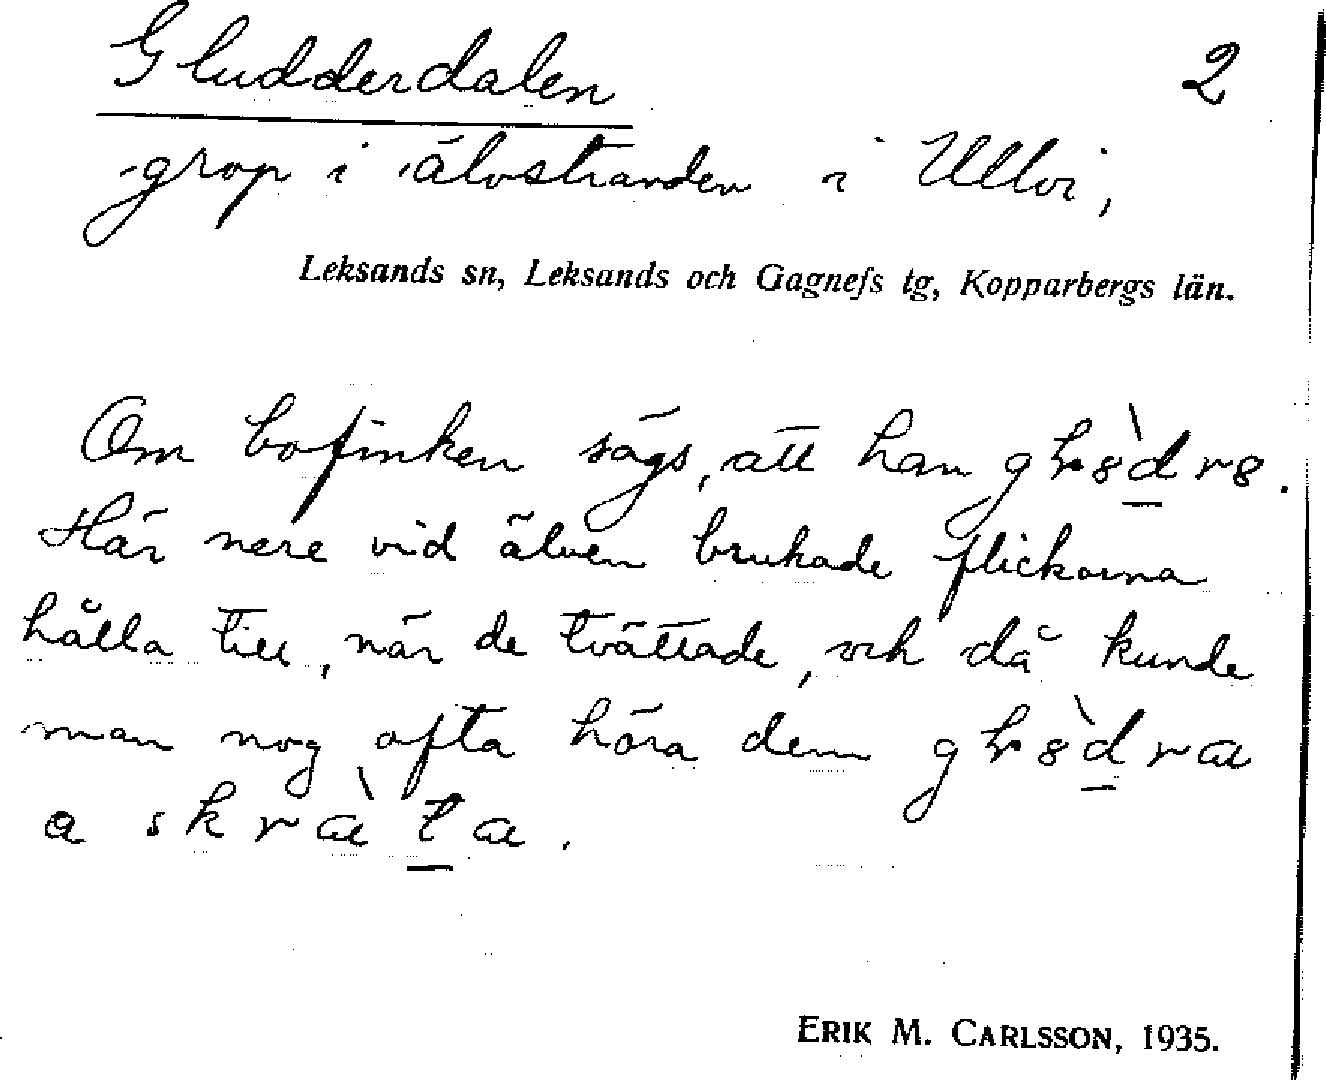 Gludderdalen 2
grop i älvstranden i Ullvi,
Leksands sn, Leksands och Gagnefs tg, Kopparbergs län.
Om bofinken sägs, att han
Här nere vid älven brukade flickorna
hålla till, när de tvättade, och då kunde
man nog ofta höra dem
a skràta.
ERIK M. CARLSSON, 1935.